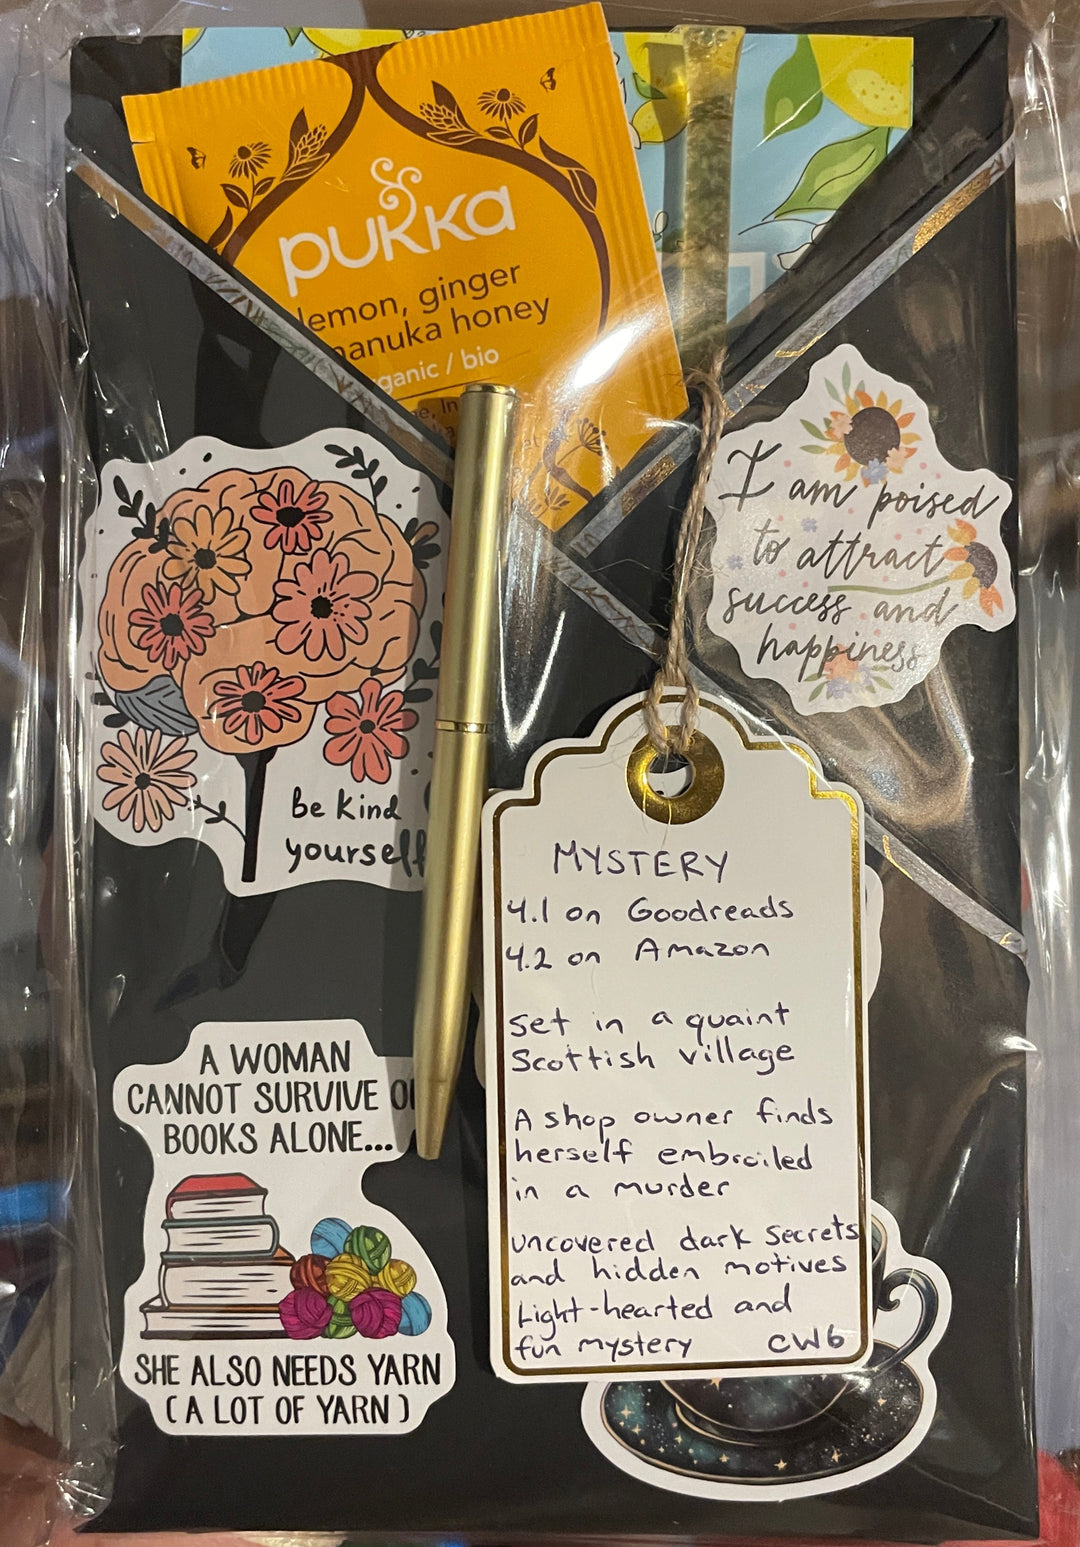 pukka
lemon, ginger
manuka honey
organic / bio
I am poised
to attract
success and
happiness
be kind
yourself
MYSTERY
4.1 on Goodreads
4.2 on Amazon
set in a quaint
Scottish village
A shop owner finds
herself embroiled
in a murder
uncovered dark secrets
and hidden motives
Light-hearted and
fun mystery CW6
A WOMAN
CANNOT SURVIVE
BOOKS ALONE...
SHE ALSO NEEDS YARN
(A LOT OF YARN)